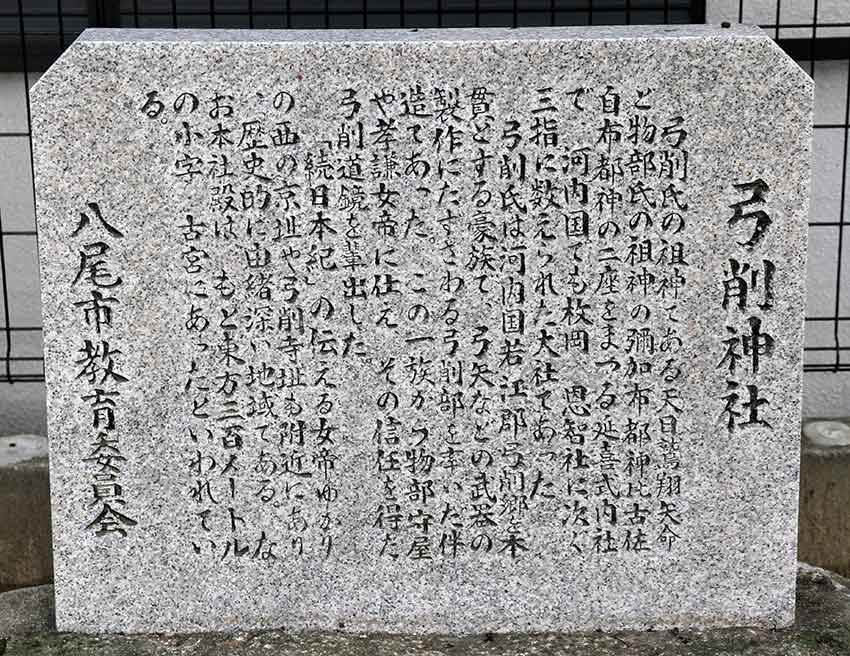 弓削神社
弓削氏の祖神である天日鷲翔矢命
と物部氏の祖神の彌加布都神比古佐
自布都神の二座をまつる延喜式内社
で、河内国でも枚岡、恩智社に次ぐ
三指に数えられた大社であった。
弓削氏は河内国若江郡弓削郷を本
貫とする豪族で、弓矢などの武器の
製作にたずさわる弓削部を率いた伴
造であった。この一族から物部守屋
や孝謙女帝に仕え、その信任を得た
弓削道鏡を輩出した。
「続日本紀」の伝える女帝ゆかり
の西の京址や弓削寺址も附近にあり
、歴史的に由緒深い地域である。な
お本社殿は、もと東方三百メートル
の小字、古宮にあったといわれてい
る。
八尾市教育委員会